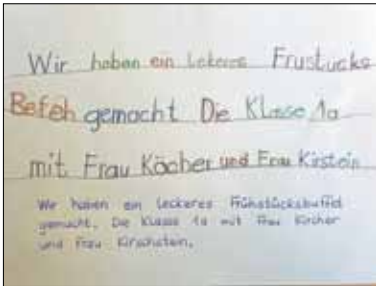 Wir haben ein leckeres Frustucks
Befeh gemacht Die Klasse 1a
mit Frau Köcher und Frau Kirstein
Wir haben ein leckeres Frühstücksbuffet
gemacht. Die Klasse 1a mit Frau Kircher
und Frau Kirschstein.